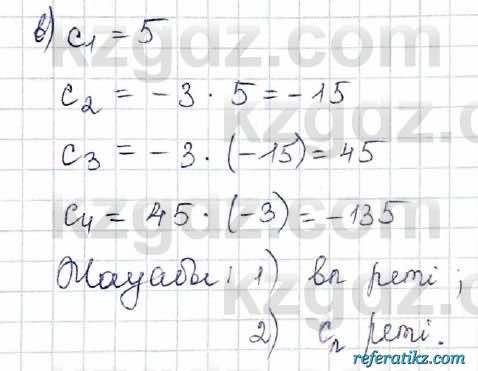 в) c₁ = 5
c₂ = -3 · 5 = -15
c₃ = -3 · (-15) = 45
c₄ = 45 · (-3) = -135
Жауабы: 1) bₙ реті;
2) cₙ реті.
kzgdz.com
referatikz.com